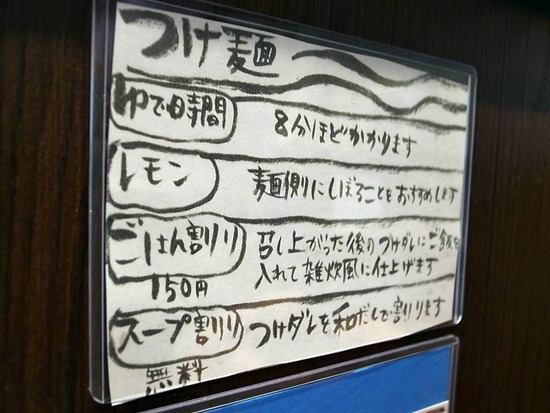 つけ麺
ゆで時間
8分ほどかかります
レモン
麺側にしぼることをおすすめします
ごはん割り
150円
召し上がった後のつけダレにご飯を
入れて雑炊風に仕上げます
スープ割り
無料
つけダレを和だしで割ります